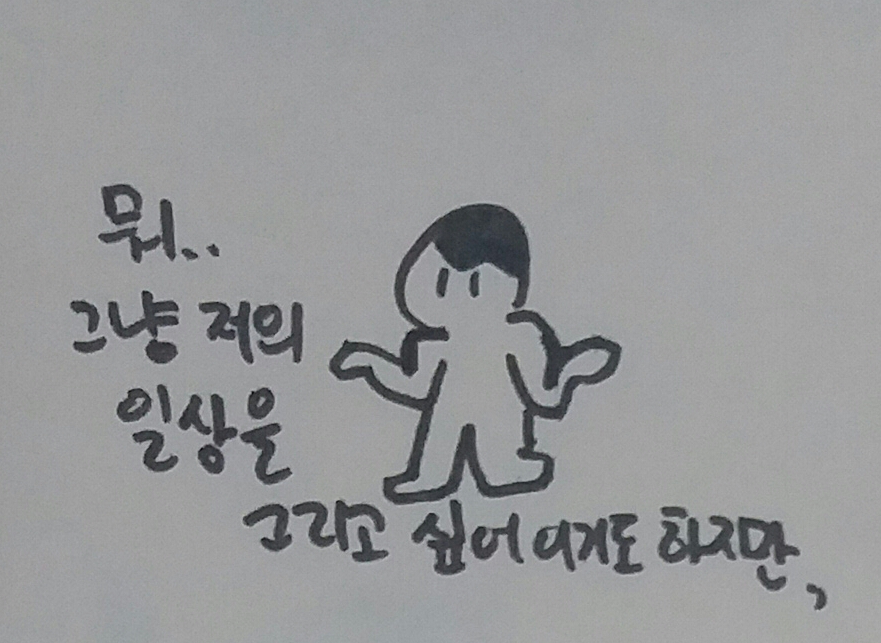 뭐..
그냥 저의
일상을
그리고 싶어 이기도 하지만,